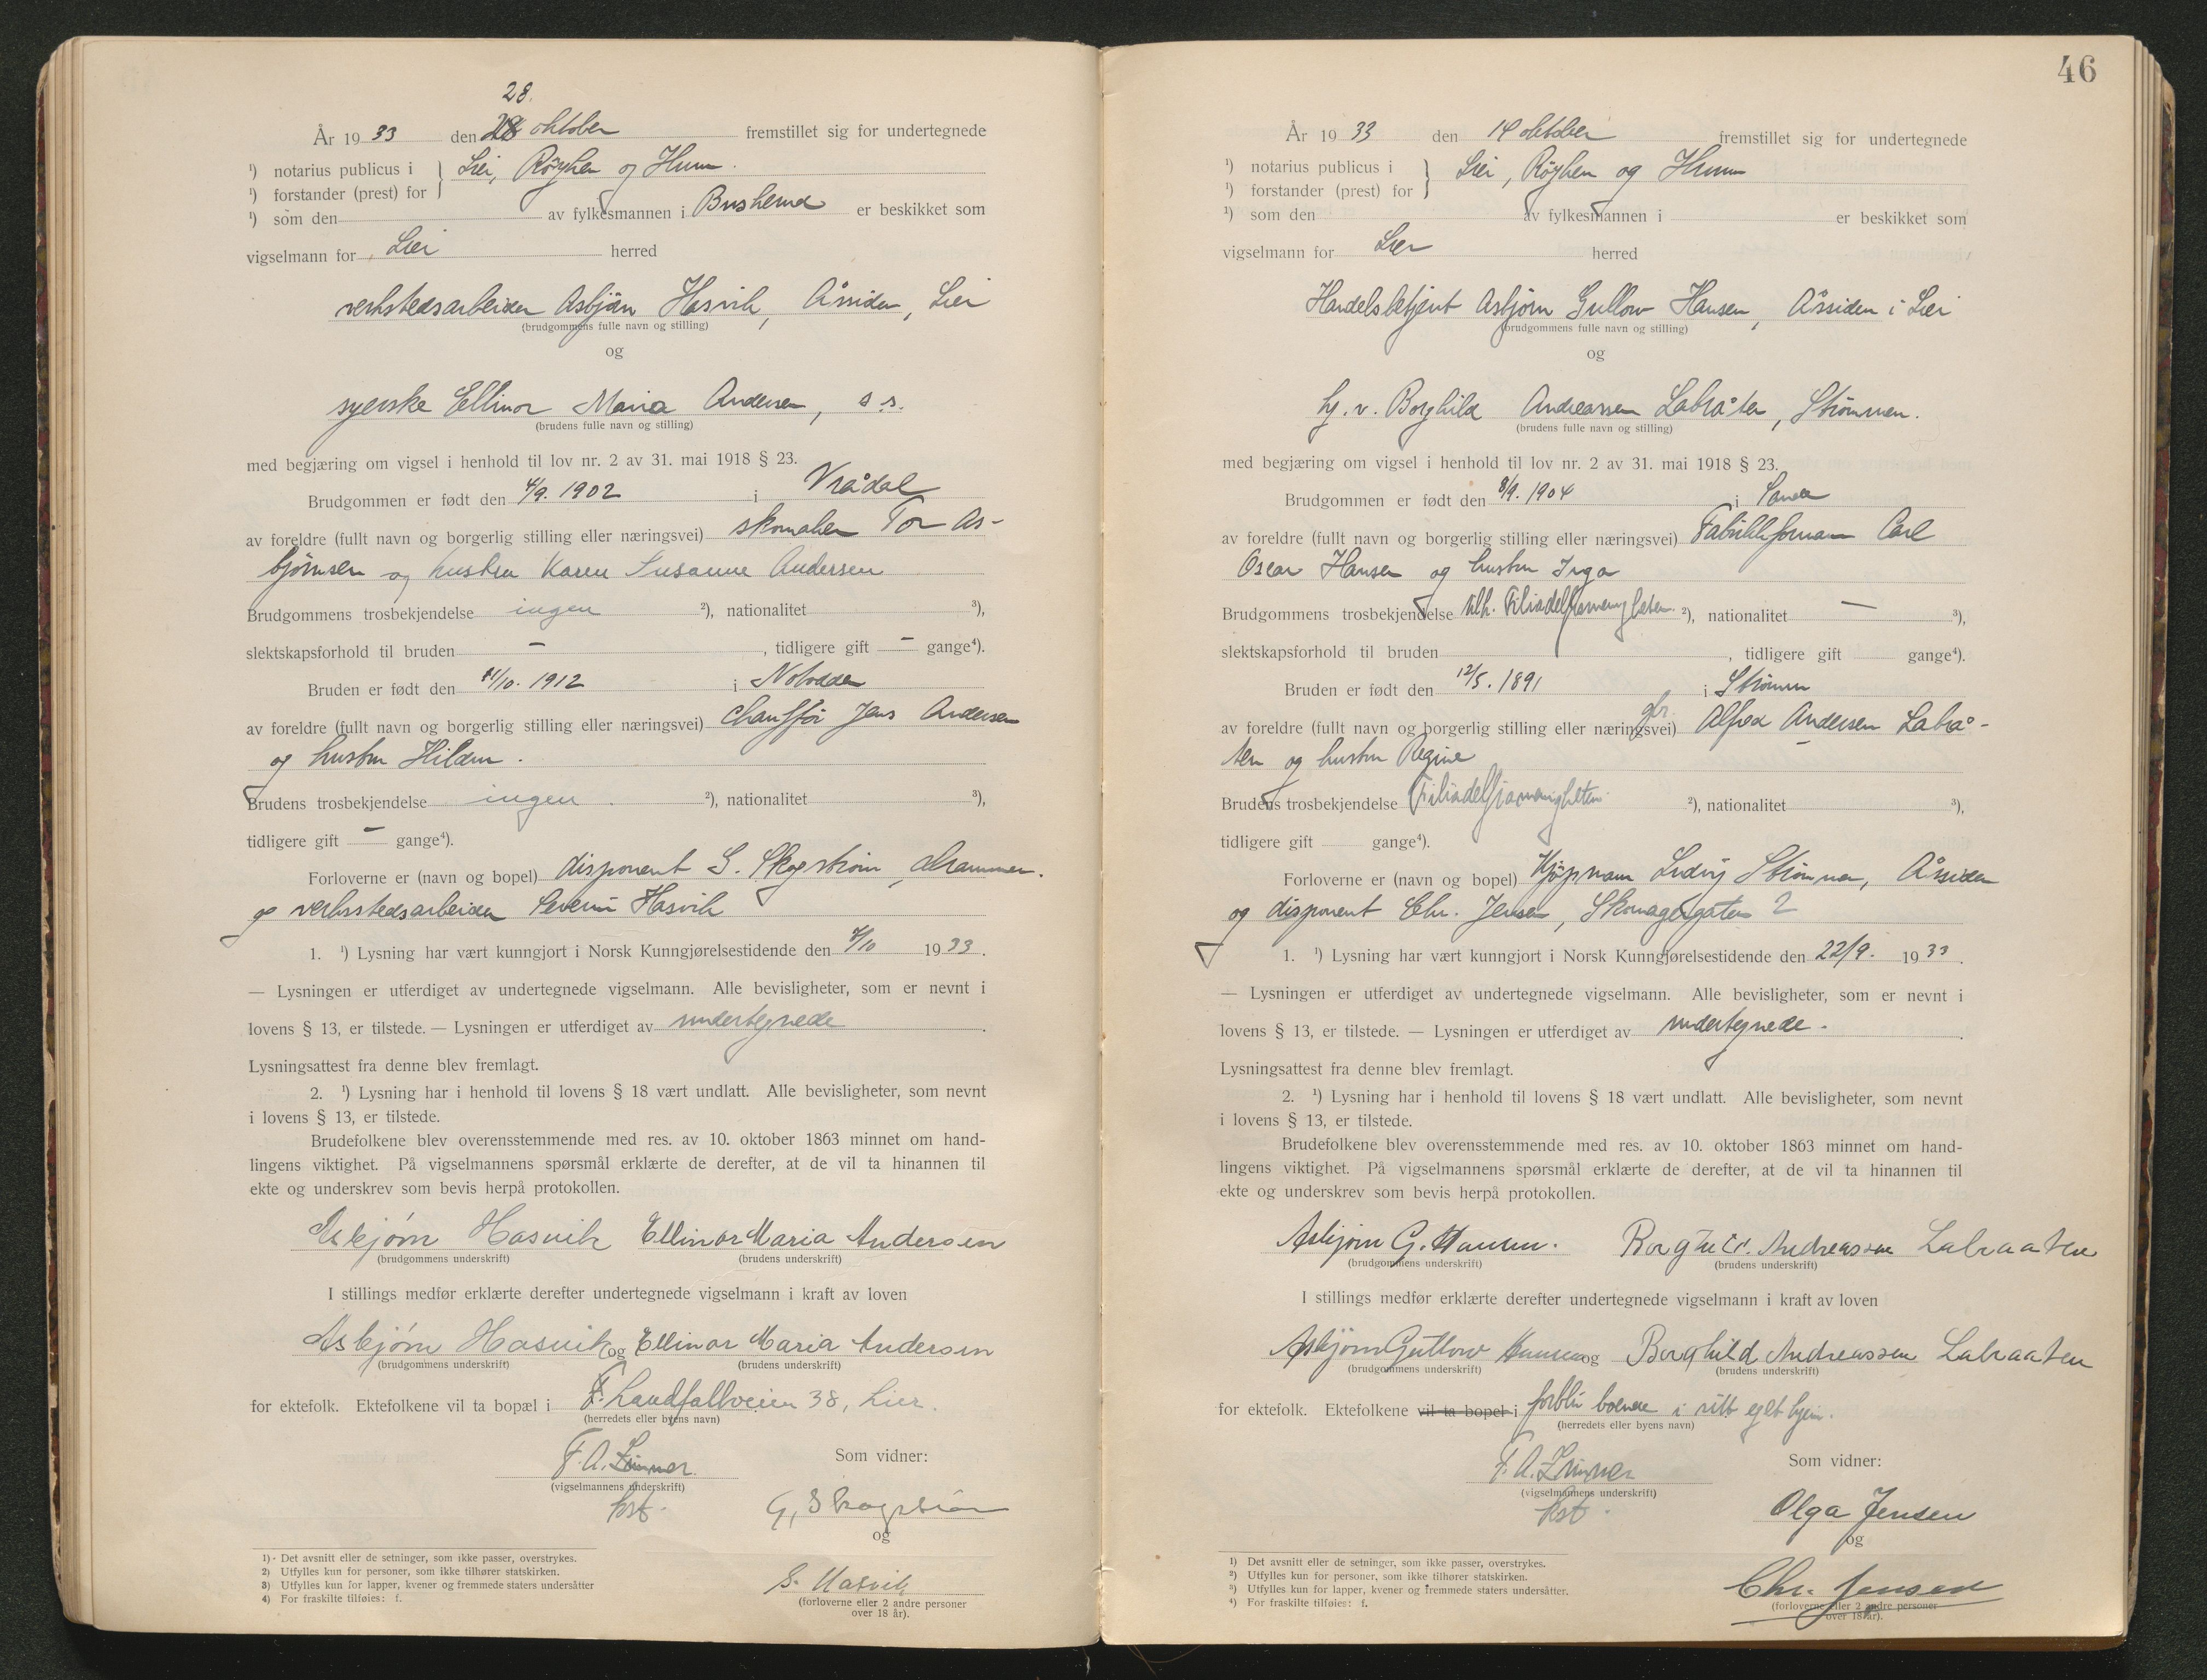 28.
År 19 33 den 28 oktober fremstillet sig for undertegnede
¹) notarius publicus i } Lier, Røyken og Hurum.
¹) forstander (prest) for
¹) som den av fylkesmannen i Buskerud er beskikket som
vigselmann for Lier herred
verkstedsarbeider Asbjørn Hasvik, Åssiden, Lier
(brudgommens fulle navn og stilling)
og
syerske Ellinor Maria Andersen, s.s.
(brudens fulle navn og stilling)
med begjæring om vigsel i henhold til lov nr. 2 av 31. mai 1918 § 23.
Brudgommen er født den 4/9. 1902 i Vrådal
av foreldre (fullt navn og borgerlig stilling eller næringsvei) skomaker Tor As-
bjørnsen og hustru Karen Susanne Andersen
Brudgommens trosbekjendelse ingen ²), nationalitet ³),
slektskapsforhold til bruden – , tidligere gift – gange⁴).
Bruden er født den 11/10. 1912 i Notodden
av foreldre (fullt navn og borgerlig stilling eller næringsvei) chauffør Jens Andersen
og hustru Hilda.
Brudens trosbekjendelse ingen. ²), nationalitet ³),
tidligere gift – gange⁴).
Forloverne er (navn og bopel) disponent G. Skogstrøm, Drammen.
og verksstedsarbeider Severin Hasvik
1. ¹) Lysning har vært kunngjort i Norsk Kunngjørelsestidende den /10 1933.
— Lysningen er utferdiget av undertegnede vigselmann. Alle bevisligheter, som er nevnt i
lovens § 13, er tilstede. — Lysningen er utferdiget av undertegnede.
Lysningsattest fra denne blev fremlagt.
2. ¹) Lysning har i henhold til lovens § 18 vært undlatt. Alle bevisligheter, som nevnt
i lovens § 13, er tilstede.
Brudefolkene blev overensstemmende med res. av 10. oktober 1863 minnet om hand-
lingens viktighet. På vigselmannens spørsmål erklærte de derefter, at de vil ta hinannen til
ekte og underskrev som bevis herpå protokollen.
Asbjørn Hasvik Ellinor Maria Andersen
(brudgommens underskrift) (brudens underskrift)
I stillings medfør erklærte derefter undertegnede vigselmann i kraft av loven
Asbjørn Hasvik og Ellinor Maria Andersen
(brudgommens underskrift) (brudens underskrift)
for ektefolk. Ektefolkene vil ta bopæl i F. Landfallveien 38, Lier.
(herredets eller byens navn)
F. A. Linner Som vidner:
(vigselmannens underskrift)
kst. G. Skogstrøm
og
S. Hasvik
(forloverne eller 2 andre personer
over 18 år).
1) Det avsnitt eller de setninger, som ikke passer, overstrykes.
2) Utfylles kun for personer, som ikke tilhører statskirken.
3) Utfylles kun for lapper, kvener og fremmede staters undersåtter
4) For fraskilte tilføies: f.
46
År 19 33 den 14 oktober fremstillet sig for undertegnede
¹) notarius publicus i } Lier, Røyken og Hurum
¹) forstander (prest) for
¹) som den av fylkesmannen i er beskikket som
vigselmann for Lier herred
Handelsbetjent Asbjørn Gullow Hansen, Åssiden i Lier
(brudgommens fulle navn og stilling)
og
hj. v. Borghild Andreassen Labråten, Strømmen.
(brudens fulle navn og stilling)
med begjæring om vigsel i henhold til lov nr. 2 av 31. mai 1918 § 23.
Brudgommen er født den 8/9. 1904 i Sande
av foreldre (fullt navn og borgerlig stilling eller næringsvei) Fabrikkformann Carl
Oscar Hansen og hustru Inga
Brudgommens trosbekjendelse tilh. Filiadelfiamenigheten. ²), nationalitet — ³),
slektskapsforhold til bruden , tidligere gift gange⁴).
Bruden er født den 12/5. 1891 i Strømm
av foreldre (fullt navn og borgerlig stilling eller næringsvei) gbr. Alfred Andersen Labrå-
ten og hustru Regine
Brudens trosbekjendelse Filiadelfiamenigheten ²), nationalitet ³),
tidligere gift gange⁴).
Forloverne er (navn og bopel) Kjøpmann Ludvig Strømmen, Åssiden
og disponent Chr. Jensen, Skomagergaten 2
1. ¹) Lysning har vært kunngjort i Norsk Kunngjørelsestidende den 22/9. 1933.
— Lysningen er utferdiget av undertegnede vigselmann. Alle bevisligheter, som er nevnt i
lovens § 13, er tilstede. — Lysningen er utferdiget av undertegnede.
Lysningsattest fra denne blev fremlagt.
2. ¹) Lysning har i henhold til lovens § 18 vært undlatt. Alle bevisligheter, som nevnt
i lovens § 13, er tilstede.
Brudefolkene blev overensstemmende med res. av 10. oktober 1863 minnet om hand-
lingens viktighet. På vigselmannens spørsmål erklærte de derefter, at de vil ta hinannen til
ekte og underskrev som bevis herpå protokollen.
Asbjørn G. Hansen. Borghild Andreassen Labraaten
(brudgommens underskrift) (brudens underskrift)
I stillings medfør erklærte derefter undertegnede vigselmann i kraft av loven
Asbjørn Gullow Hansen og Borghild Andreassen Labraaten
(brudgommens underskrift) (brudens underskrift)
for ektefolk. Ektefolkene vil ta bopel i forbli boende i sitt eget hjem.
(herredets eller byens navn)
F. A. Linner Som vidner:
(vigselmannens underskrift)
kst. Olga Jensen
og
Chr. Jensen
(forloverne eller 2 andre personer
over 18 år).
¹) Det avsnitt eller de setninger, som ikke passer, overstrykes.
²) Utfylles kun for personer, som ikke tilhører statskirken.
³) Utfylles kun for lapper, kvener og fremmede staters undersåtter.
⁴) For fraskilte tilføies: f.